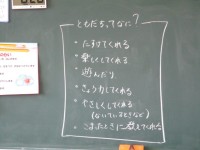 ともだちってなに?
・たすけてくれる
・楽しくしてくれる
・遊んだり
・きょう力してくれる
・やさしくしてくれる
(ないているときなど)
・こまったときに教えてくれる